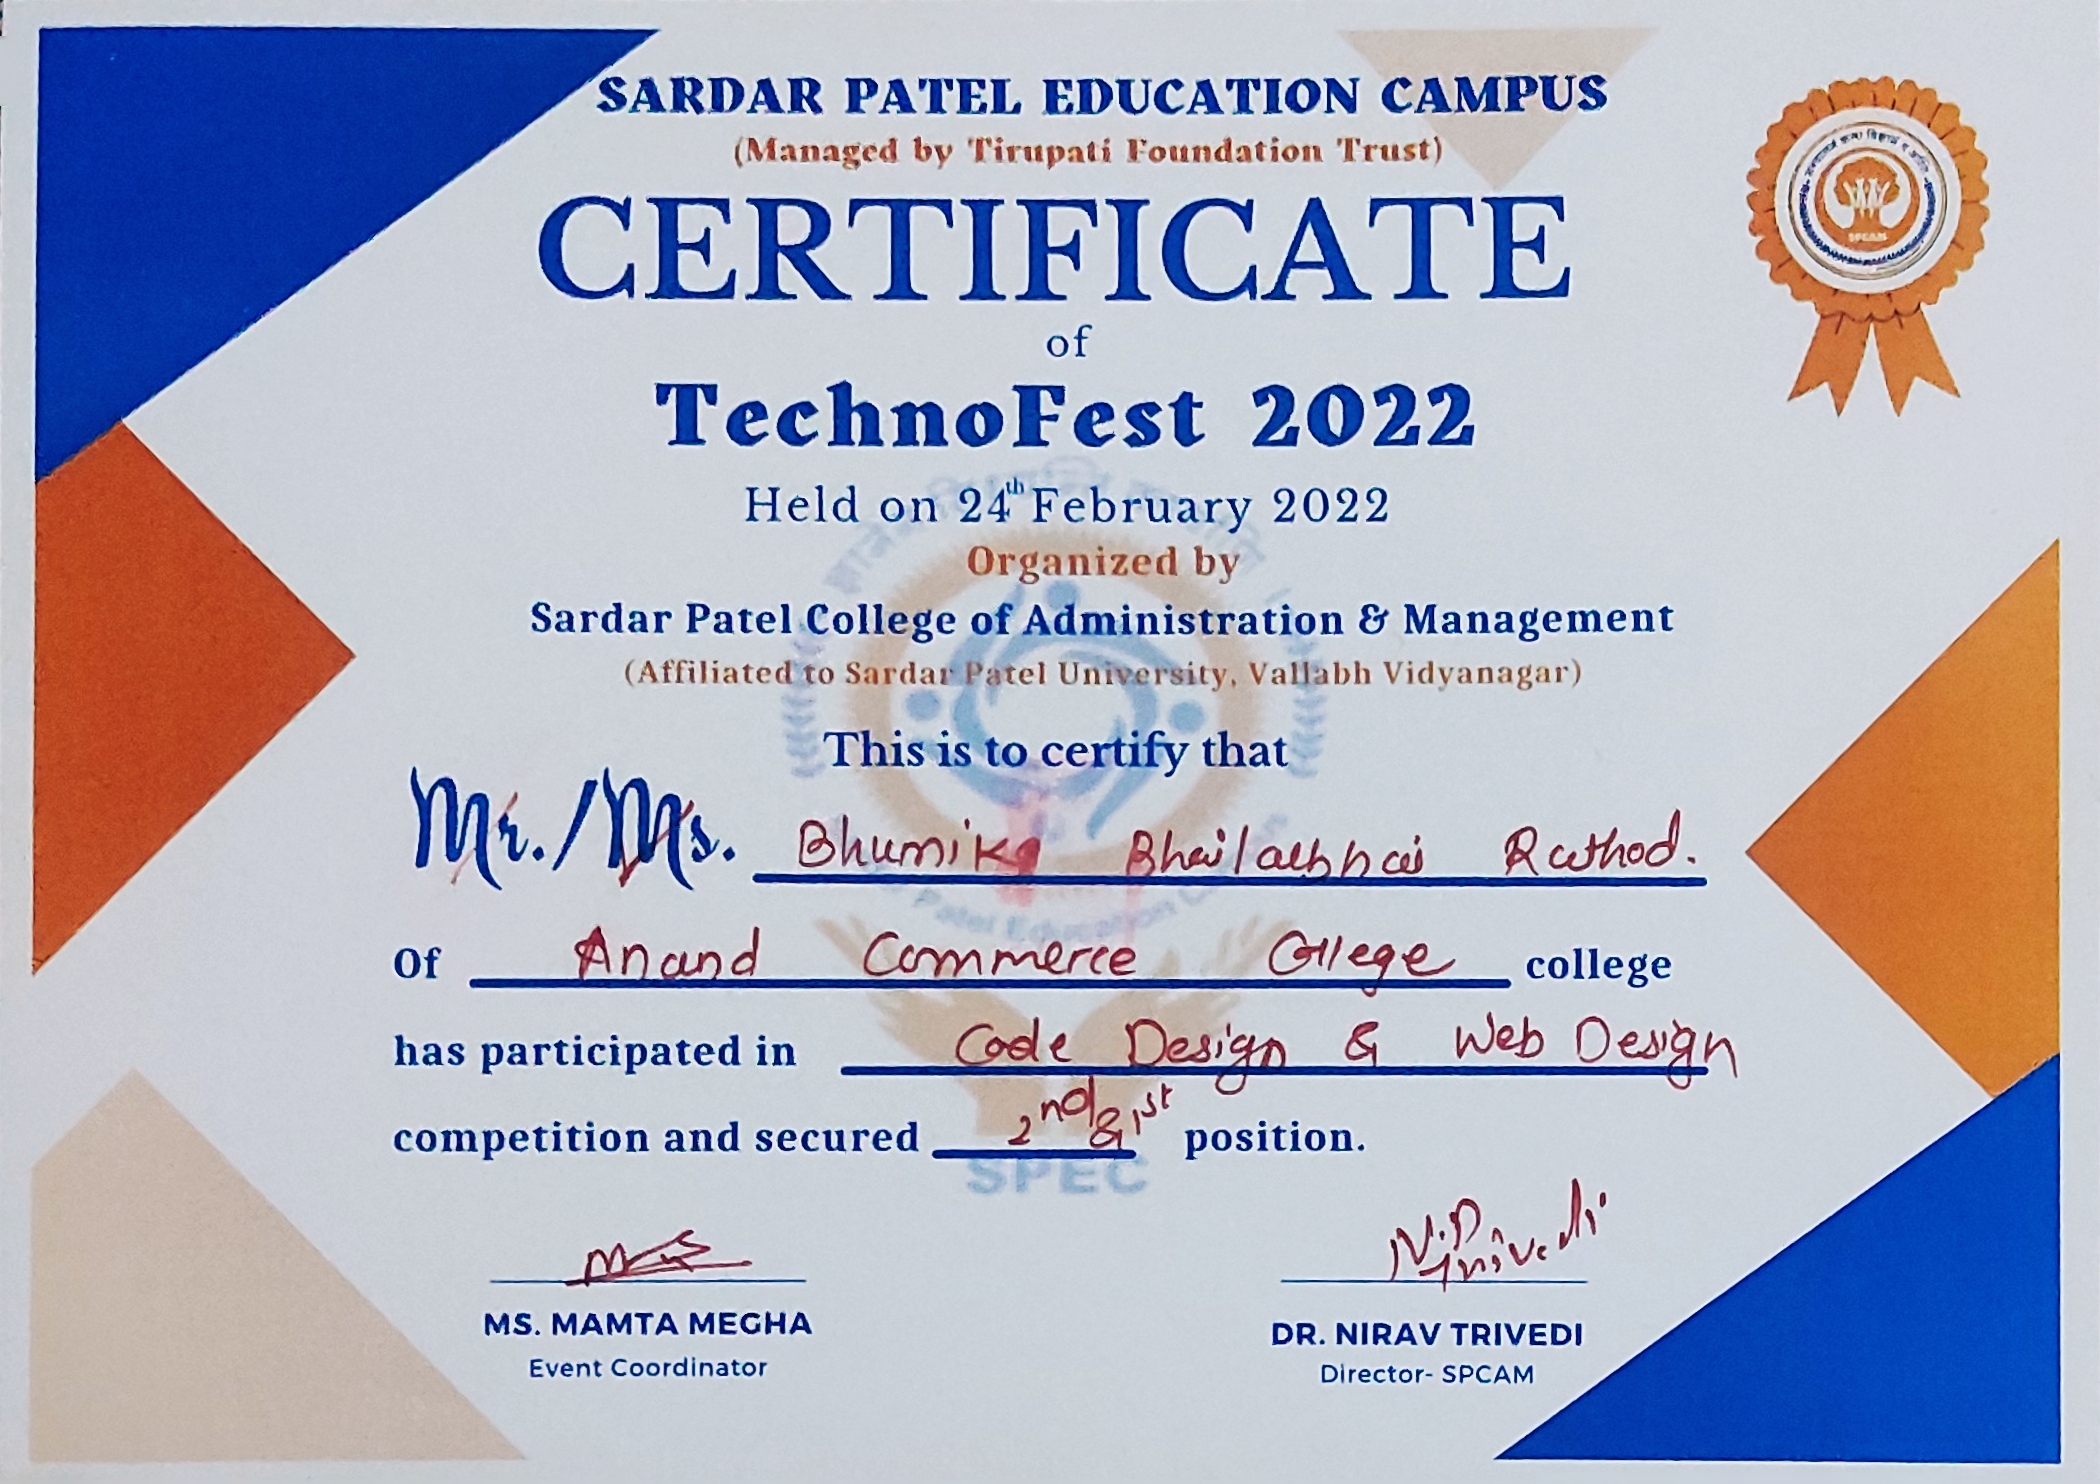 SARDAR PATEL EDUCATION CAMPUS
(Managed by Tirupati Foundation Trust)
CERTIFICATE
of
TechnoFest 2022
Held on 24th February 2022
Organized by
Sardar Patel College of Administration & Management
(Affiliated to Sardar Patel University, Vallabh Vidyanagar)
This is to certify that
Mr./Ms. Bhumika Bhailalbhai Rathod.
Of Anand Commerce College college
has participated in Code Design & Web Design
competition and secured 2nd & 1st position.
SPEC
N.D Trivedi
MS. MAMTA MEGHA
Event Coordinator
DR. NIRAV TRIVEDI
Director- SPCAM